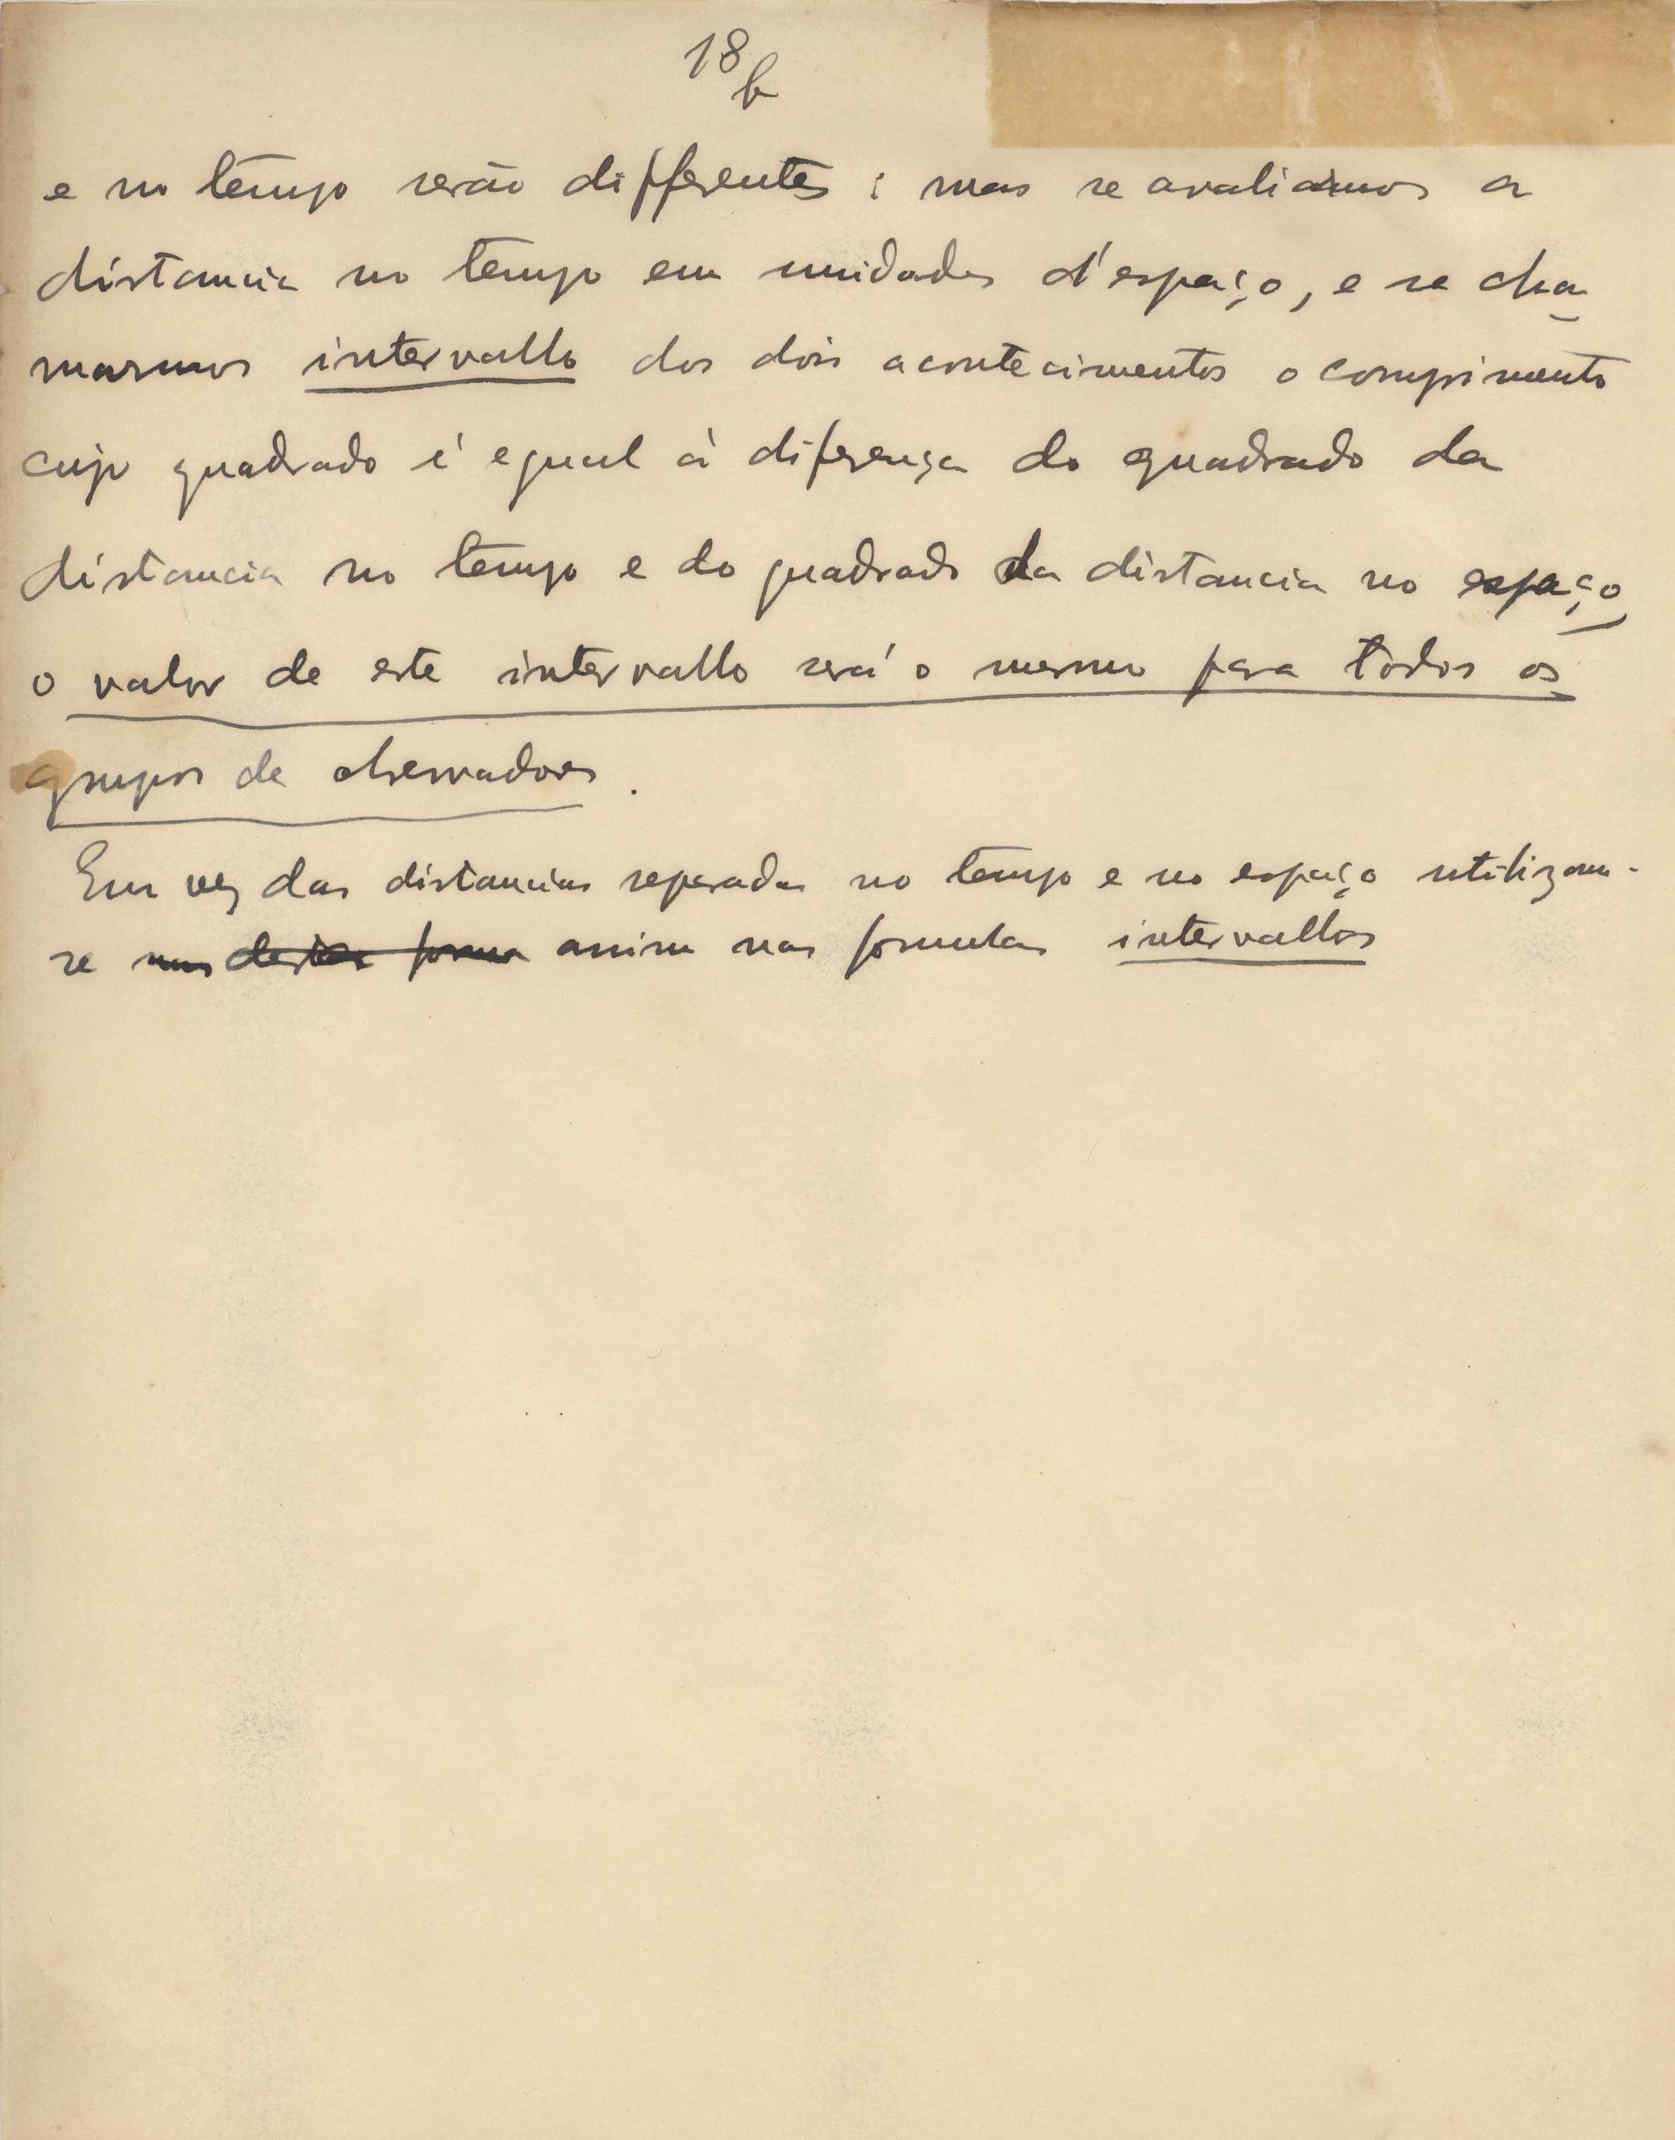 18
b
e no tempo serão differentes: mas se avaliamos a
distancia no tempo em unidades d'espaço, e se cha-
marmos intervallo dos dois acontecimentos o comprimento
cujo quadrado é egual à diferença do quadrado da
distancia no tempo e do quadrado da distancia no espaço
o valor de este intervallo será o mesmo para todos os
grupos de observadores.
Em vez das distancias separadas no tempo e no espaço utilizam-
se assim nas formulas intervallos